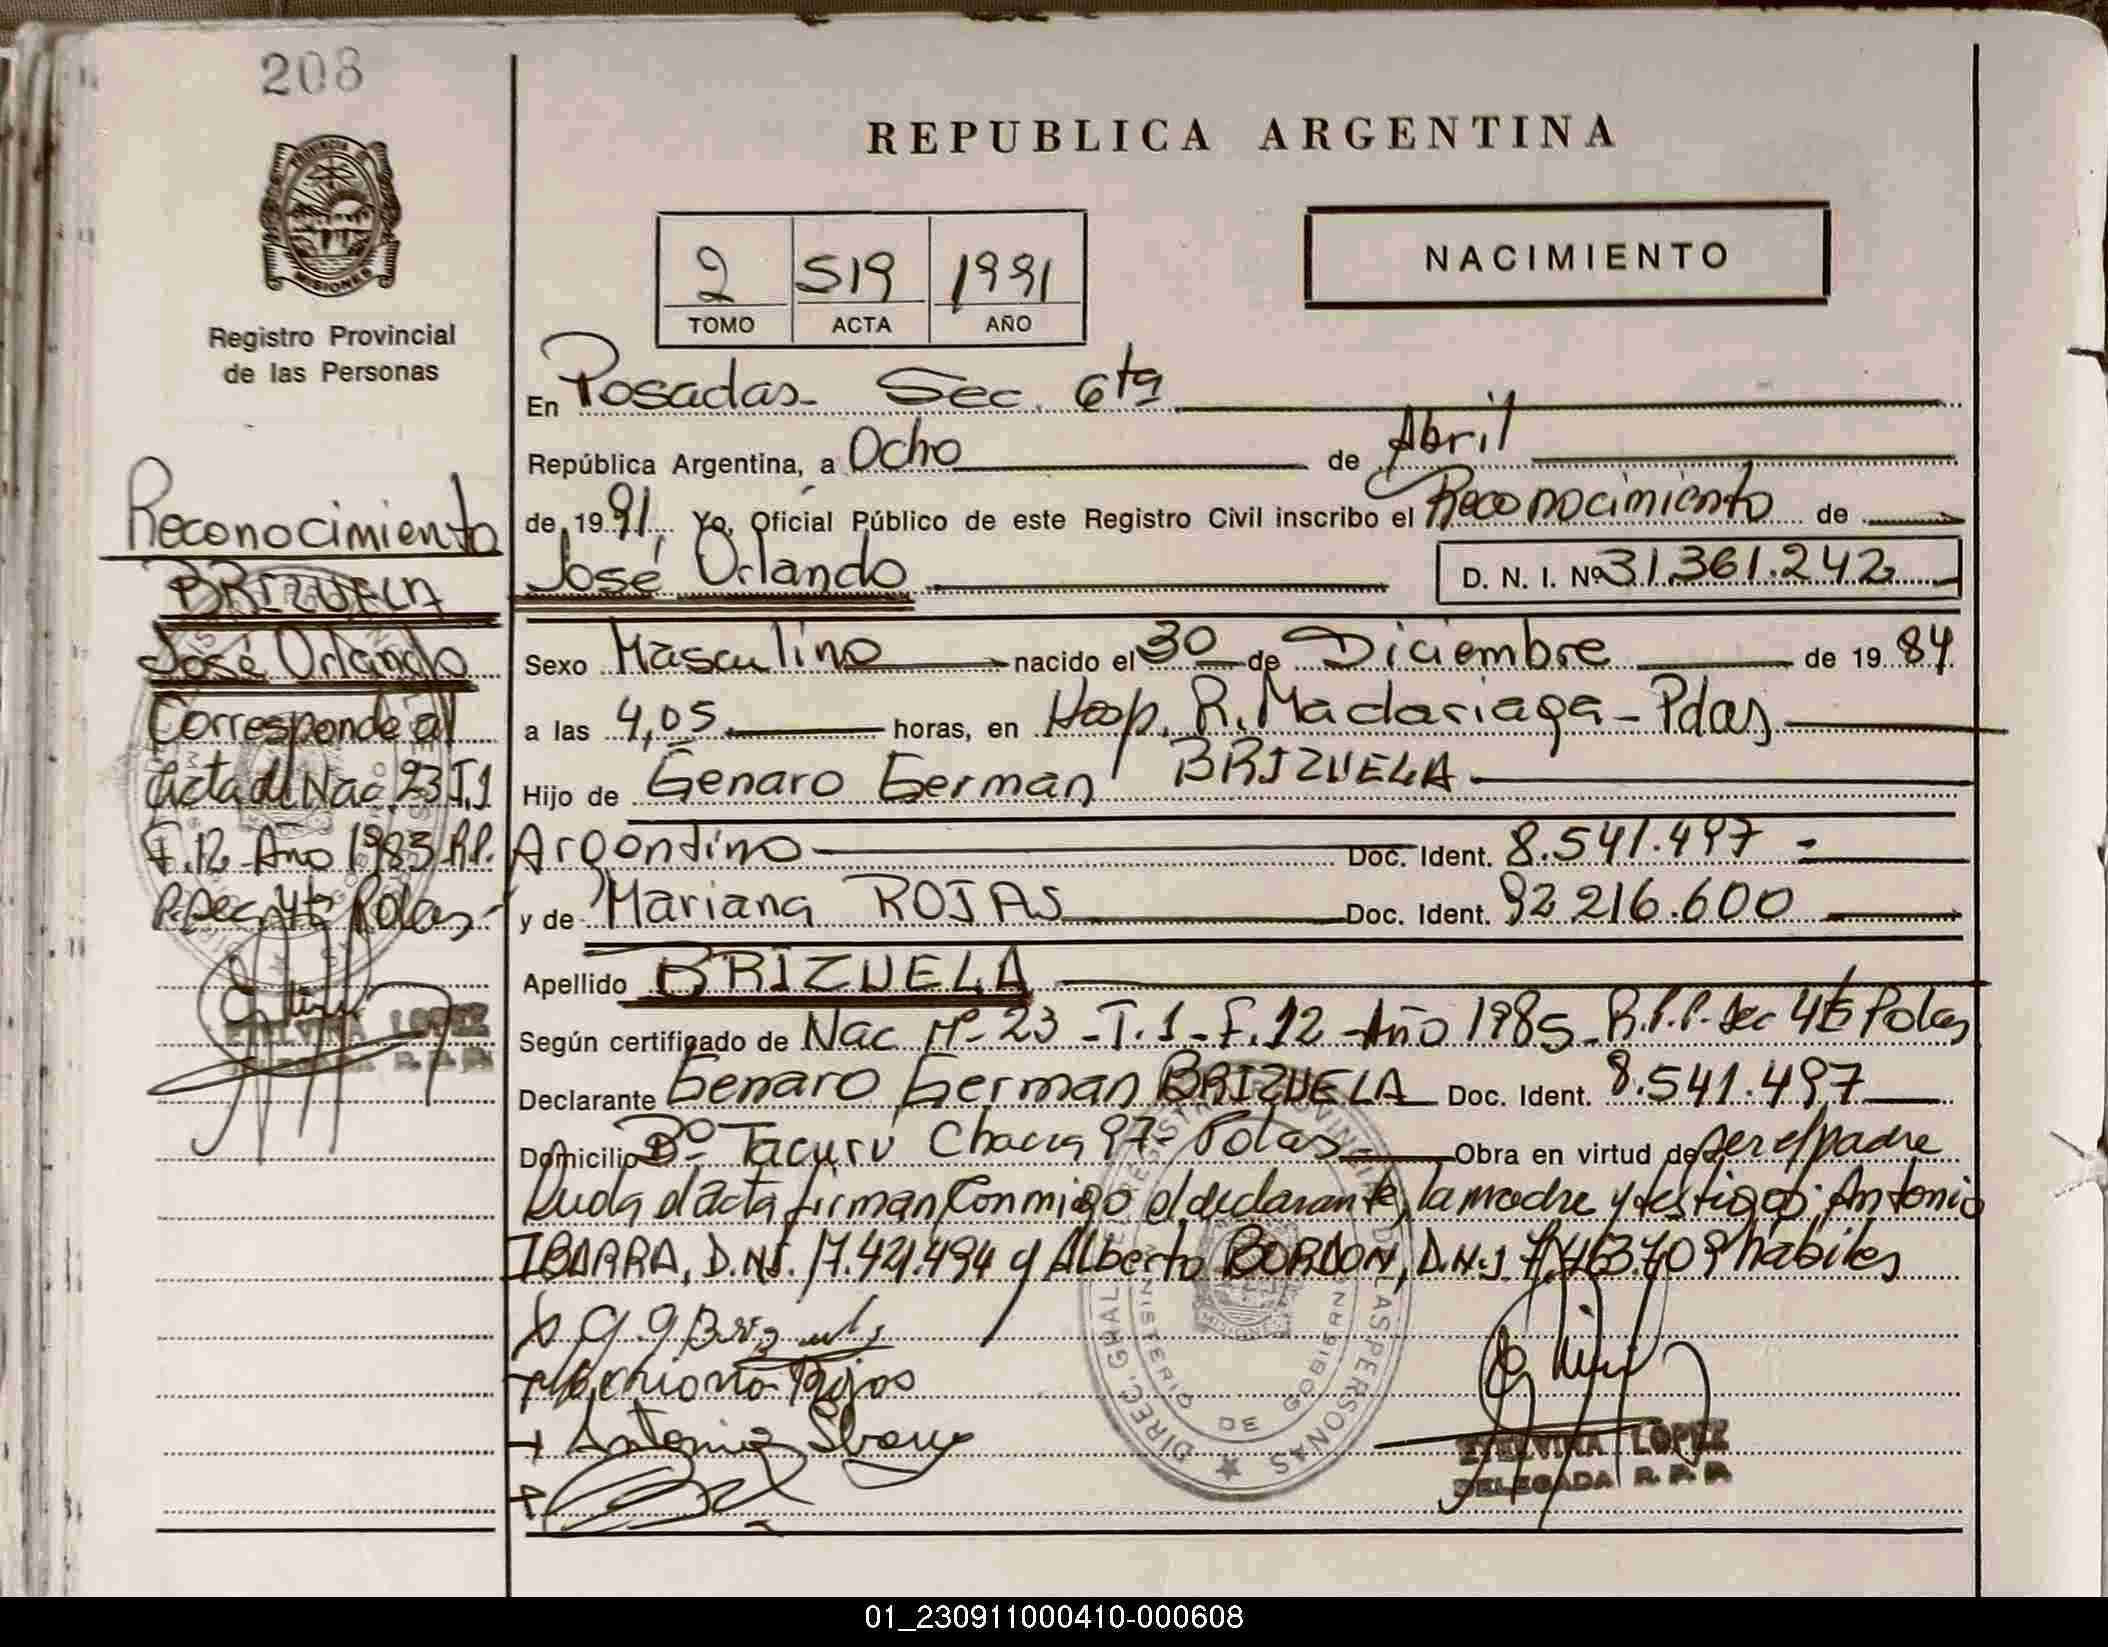 208
PROVINCIA DE
MISIONES
Registro Provincial
de las Personas
REPUBLICA ARGENTINA
2 519 1991
TOMO ACTA AÑO
NACIMIENTO
En Posadas - Sec. 6ta
República Argentina, a Ocho de Abril
de 1991, Yo, Oficial Público de este Registro Civil inscribo el Reconocimiento de
José Orlando D. N. I. Nº 31.361.242
Sexo Masculino nacido el 30 de Diciembre de 1984
a las 4,05 horas, en Hosp. R. Madariaga - Pdas
Hijo de Genaro German BRIZUELA
Argentino Doc. Ident. 8.541.497 -
y de Mariana ROJAS Doc. Ident. 92 216.600
Apellido BRIZUELA
Según certificado de Nac Nº 23 - T.1 - F.12 - Año 1985 - R.P.P. Sec 4ta Pdas
Declarante Genaro German BRIZUELA Doc. Ident. 8.541.497
Domicilio Bº Tacurú Chacra 97 - Pdas Obra en virtud de ser el padre
Leida el acta firman conmigo el declarante, la madre y testigos: Antonio
IBARRA, D.N.I. 17.421.494 y Alberto BORDON, D.N.I. 7.463.709 hábiles
Reconocimiento
BRIZUELA
José Orlando
Corresponde al
Acta de Nac. 23 T.1
F.12 - Año 1985 R.P.
P. Sec 4ta Pdas
ETELVINA LOPEZ
R. P. P.
Rojas
Antonio Ibarra
DIREC. GRAL. DE REGISTRO PROVINCIAL DE LAS PERSONAS
MINISTERIO DE GOBIERNO
MISIONES
ETELVINA LOPEZ
DELEGADA R. P. P.
01_230911000410-000608